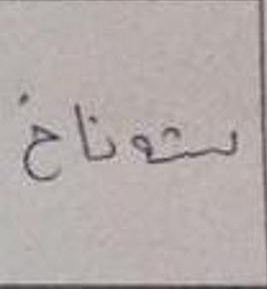 ستوناخ